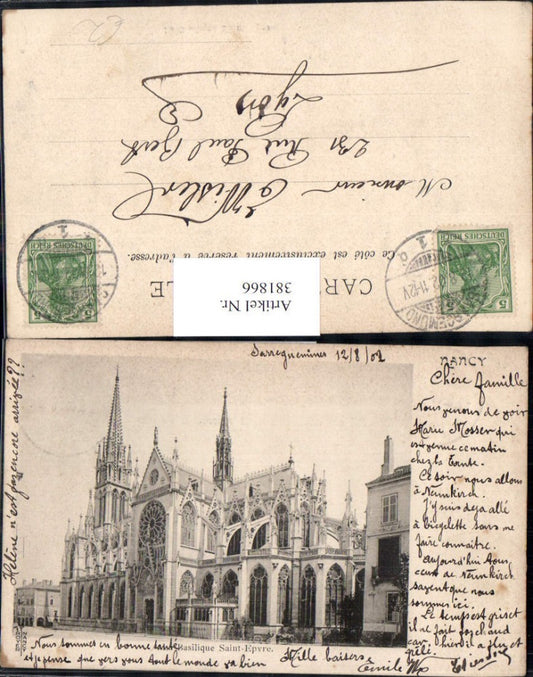 Monsieur E Wisler
231 Rue Paul Bert
Lyon
Ce côté est exclusivement réservé à l'adresse.
DEUTSCHES REICH
5
DEUTSCHES REICH
5
Artikel Nr.
381866
Sarreguemines 12/8/02
NANCY
Chère famille
Nous venons de voir
Marie Mosser qui
est venue ce matin
chez la tante.
Ce soir nous allons
à Neunkirch.
J'y suis deja allé
à bicyclette sans me
faire connaitre.
Aujourd'hui tous
ceux de Neunkirch
savent que nous
sommes ici.
Le temps est gris et
il ne fait pas chaud
car hier il a plu et
grêlé.
Hélène n'est pas encore arrivée??
Basilique Saint-Epvre.
Nous sommes en bonne santé
et je pense que vers vous tout le monde va bien
Mille baisers
Emile